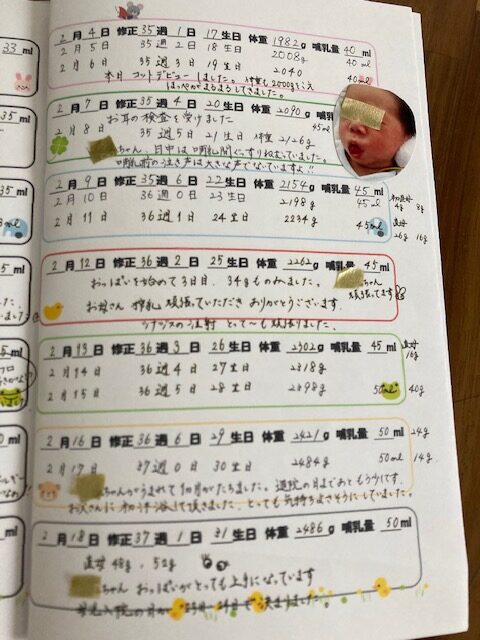 2月4日 修正35週1日 17生日 体重1982g 哺乳量40ml
2月5日 35週2日 18生日 2008g 40ml
2月6日 35週3日 19生日 2040 40
本日 コットデビューしました。体重も2000gをこえ
ほっぺがまるまるしてきました。
2月7日 修正35週4日 20生日 体重2090g 哺乳量
45ml
お耳の検査を受けました
2月8日 35週5日 21生日 体重2126g
ちゃん、日中は哺乳間ぐっすりねむっていました。
哺乳前の泣き声は大きな声でないていますよ!!
2月9日 修正35週6日 22生日 体重2154g 哺乳量45ml
2月10日 36週0日 23生日 2198g 45ml
4g 8g
2月11日 36週1日 24生日 2234g 45ml
直母
26g 16g
2月12日 修正36週2日 25生日 体重2262g 哺乳量45ml
おっぱいを始めて3日目、34gものめました。
ちゃん
頑張ってます
お母さん 搾乳 頑張っていただき ありがとうございます。
シナジスの注射 とって〜も頑張りました。
2月13日 修正36週3日 26生日 体重2302g 哺乳量45ml
直母
16g
2月14日 36週4日 27生日 2318g
2月15日 36週5日 28生日 2398g 50ml 40g
2月16日 修正36週6日 29生日 体重2421g 哺乳量50ml 24g
2月17日 37週0日 30生日 2484g 50ml 14g
ちゃんがうまれて1か月がたちました。退院の日まであともう少しです。
お父さんに 沐浴して頂きました。とっても気持ちよさそうにしていました。
2月18日 修正37週1日 31生日 体重2486g 哺乳量50ml
直母 48g, 52g
ちゃん おっぱいがとっても上手になっています
33ml
35ml